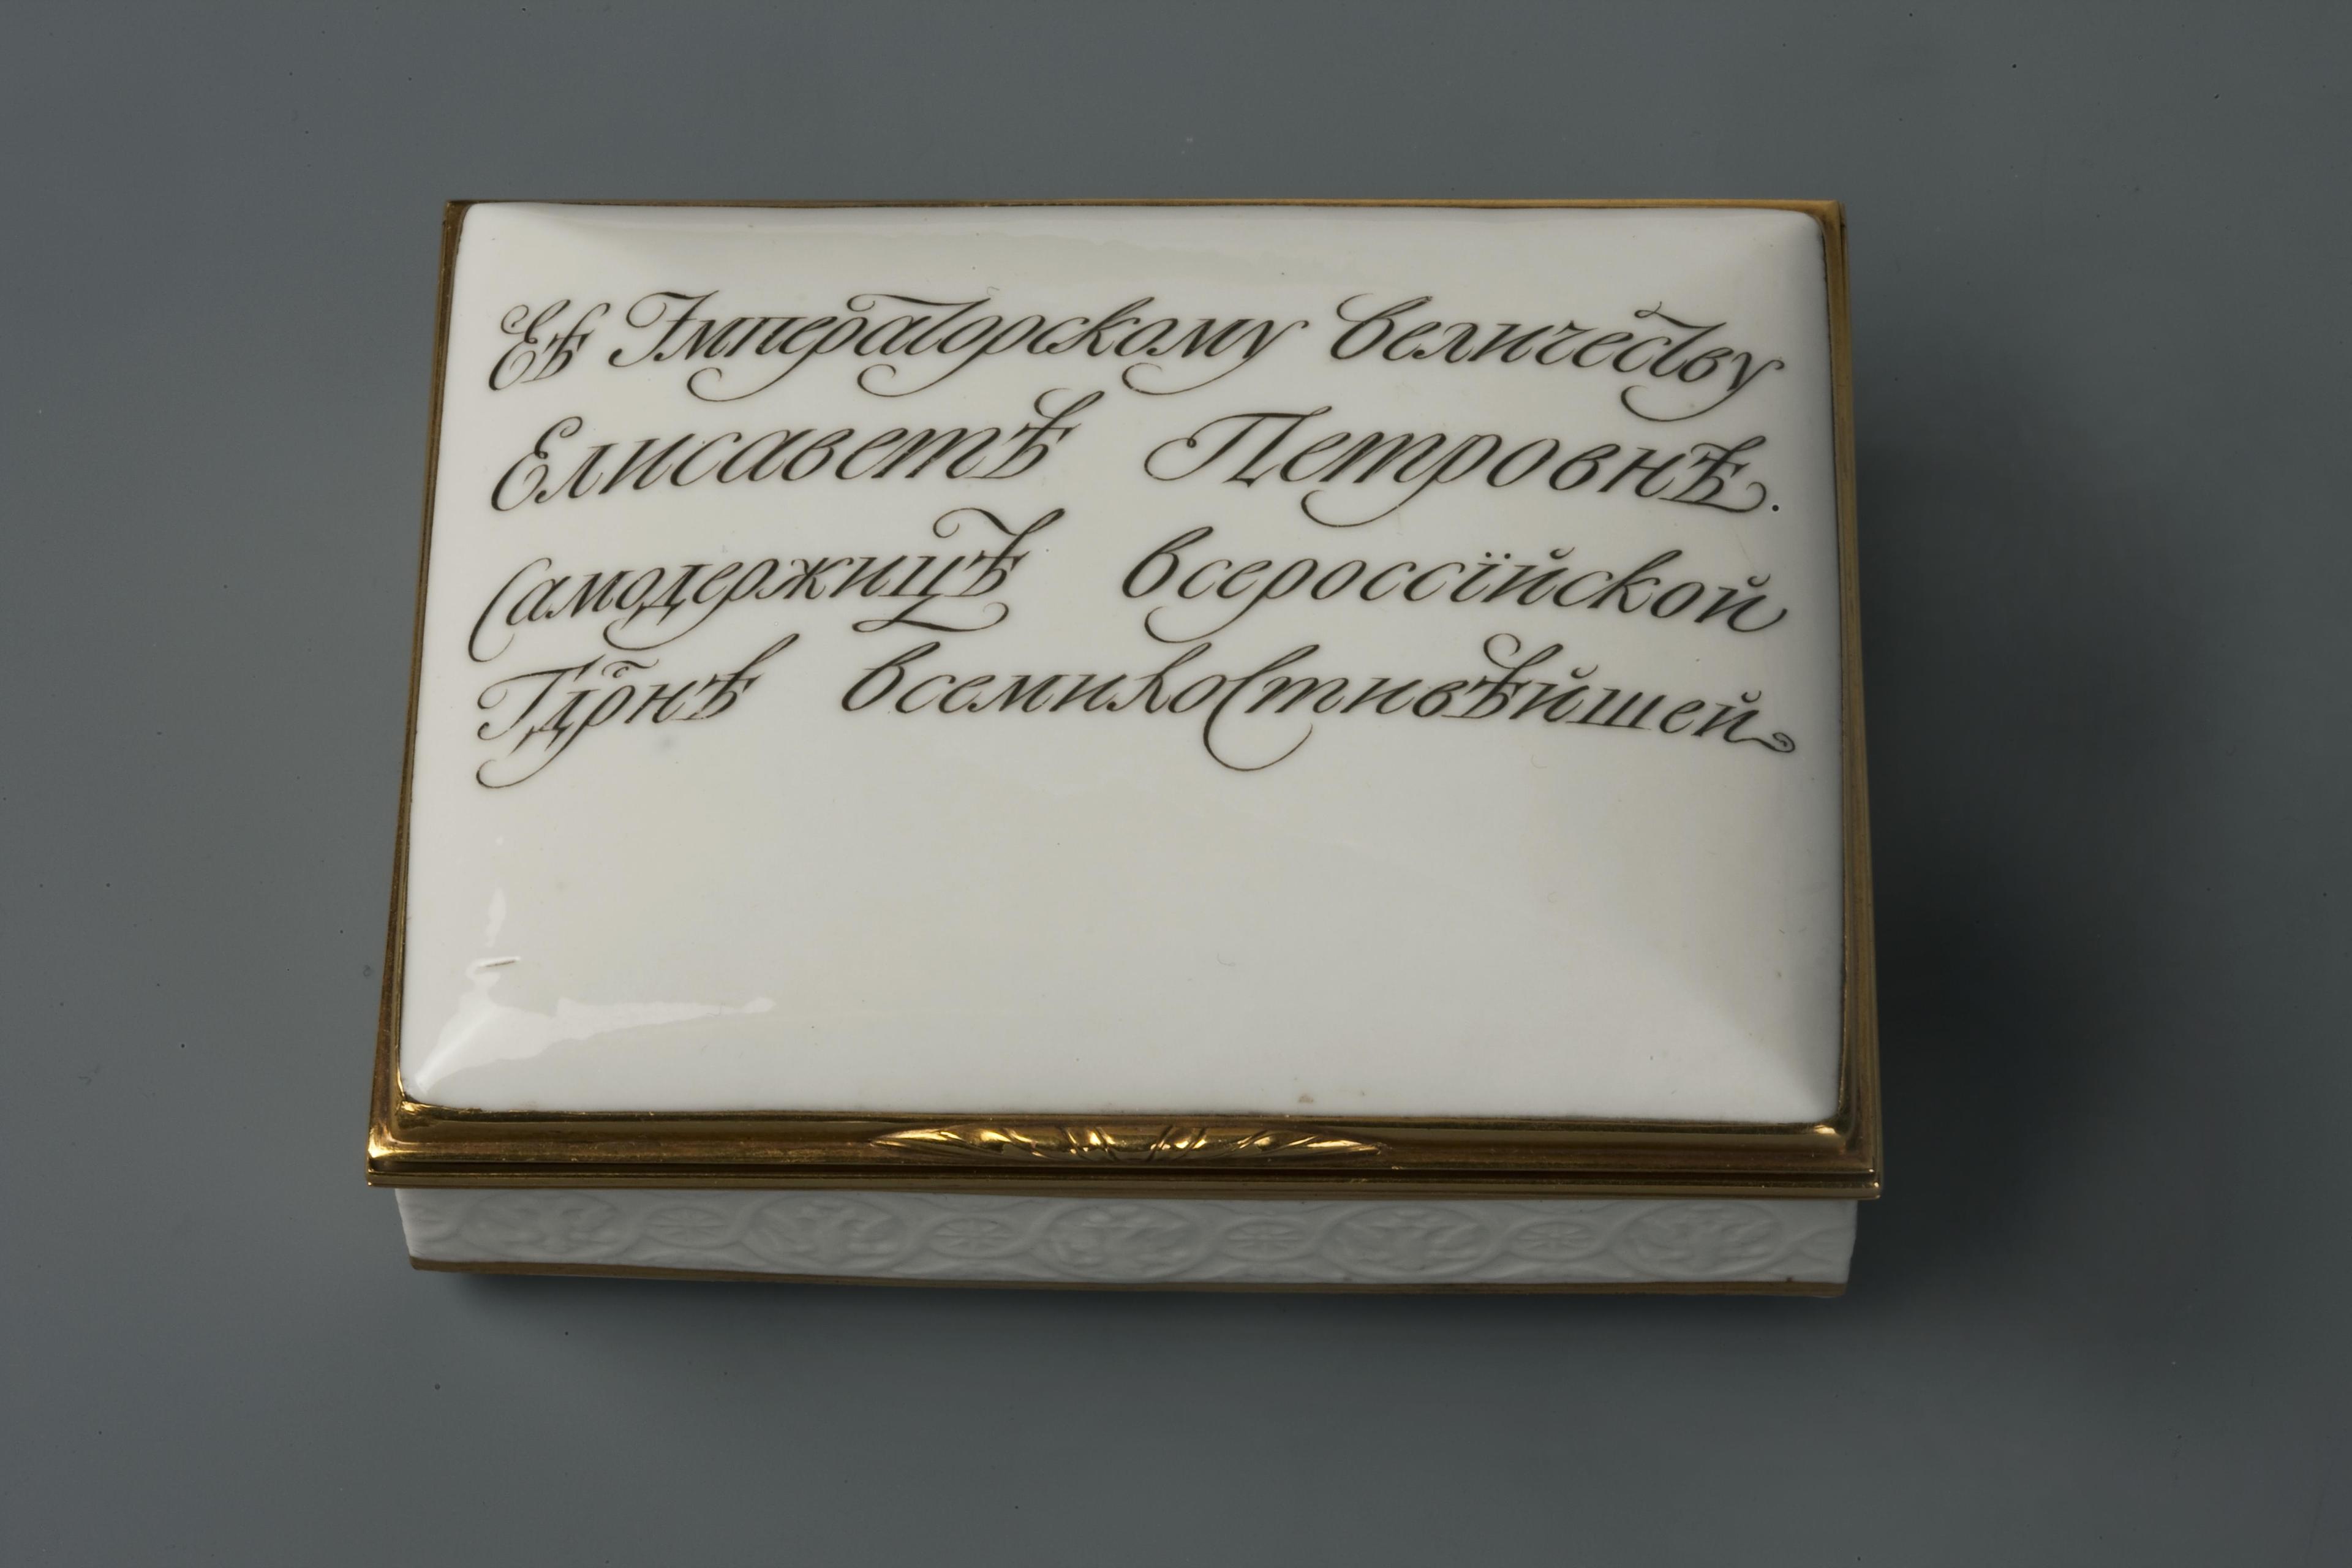 Еѣ Імператорскому величеству
Елисаветѣ Петровнѣ.
Самодержицѣ всероссїйской
Гдр͒нѣ всемилостивѣйшей